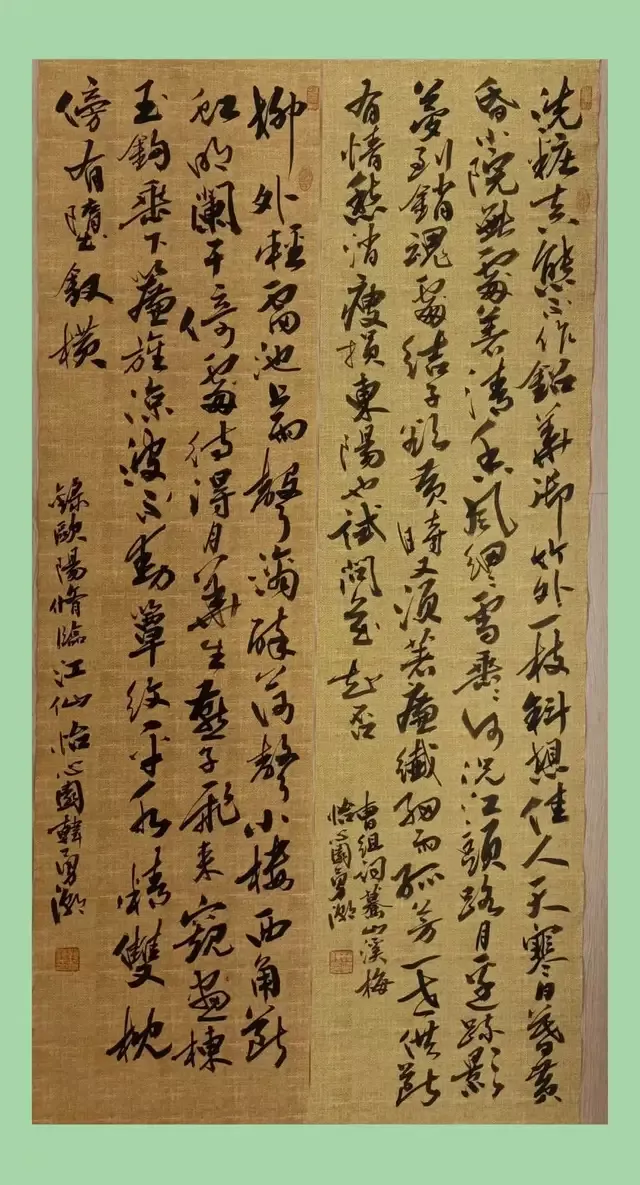 洗粧真態不作鉛華御竹外一枝斜想佳人天寒日暮黃
昏小院無處著清香風細細雪垂垂何況江頭路月邊疏影
夢到銷魂處結子欲黃時又須著廉纖細雨孤芳一世供斷
有情愁消瘦損東陽也試問花知否
曹組詞驀山溪梅
怡心園勇潮
柳外輕雷池上雨聲滴碎荷聲小樓西角斷
虹明闌干倚處待得月華生燕子飛來窺畫棟
玉鉤垂下簾旌涼波不動簟紋平水精雙枕
傍有墮釵橫
錄歐陽修臨江仙怡心園韓勇潮